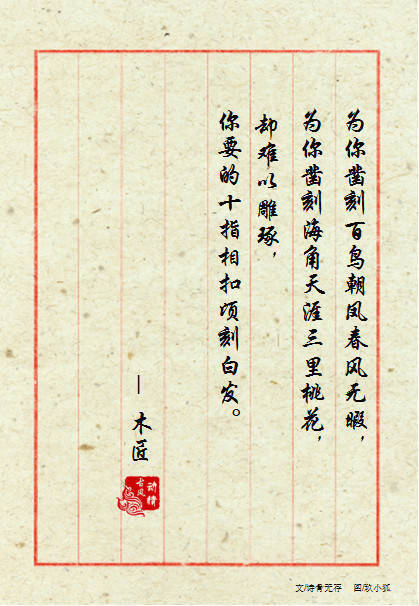 为你凿刻百鸟朝凤春风无暇，
为你凿刻海角天涯三里桃花，
却难以雕琢，
你要的十指相扣顷刻白发。
— 木匠
动情
古风
文/诗骨无存 图/玖小狐